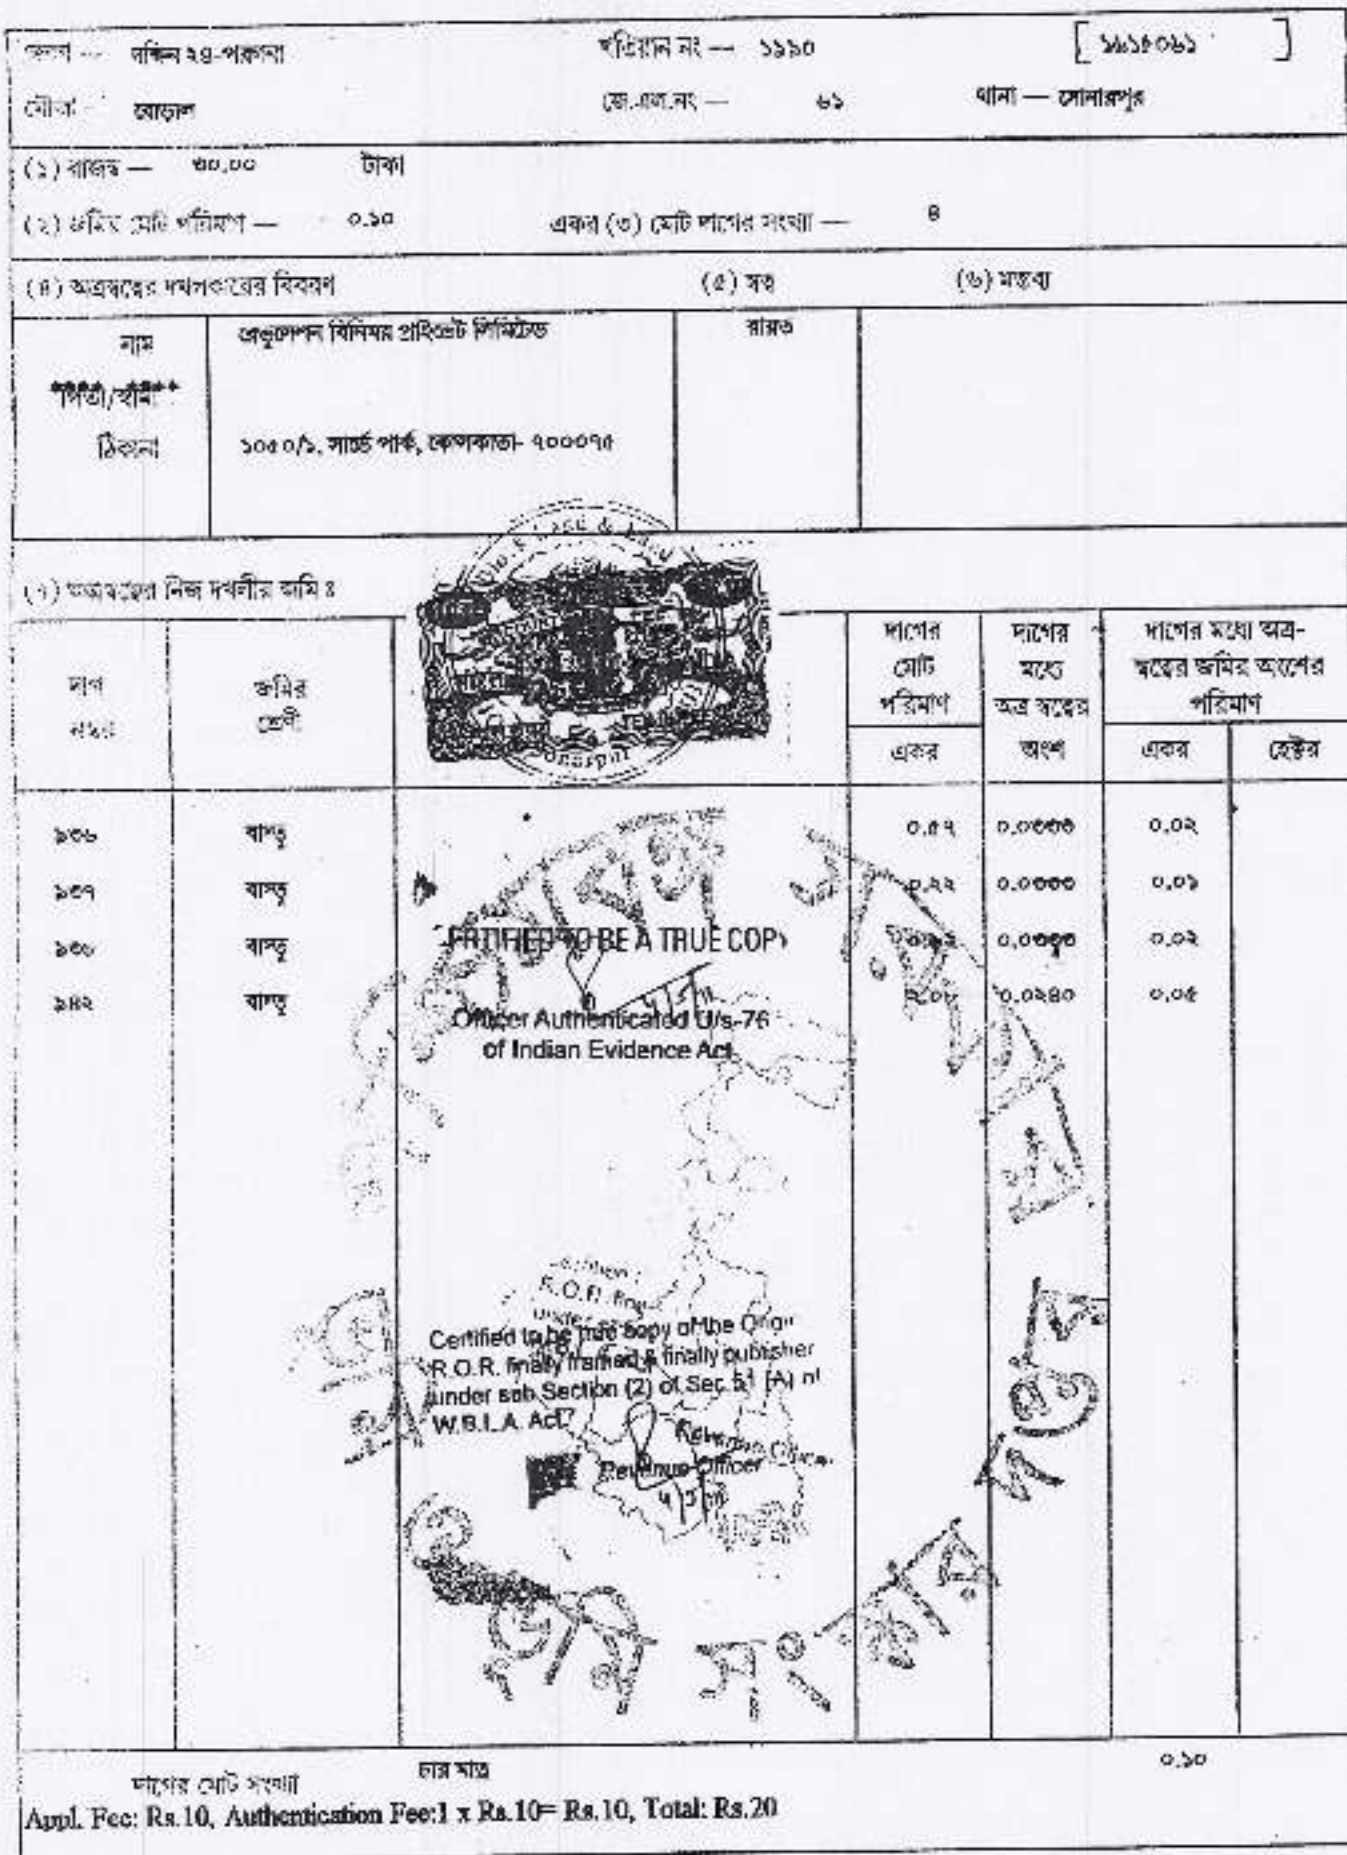 জেলা — দক্ষিন ২৪-পরগনা খতিয়ান নং — ১১৯০ [ ১৬১৫০৬১ ]
মৌজা - বোড়াল জে.এল.নং — ৬১ থানা — সোনারপুর
(১) রাজস্ব — ৩০.০০ টাকা
(২) জমির মোট পরিমাণ — ০.১০ একর (৩) মোট দাগের সংখ্যা — ৪
(৪) অত্রস্বত্বের দখলকারের বিবরণ (৫) স্বত্ব (৬) মন্তব্য
নাম রেভুলেশন বিনিময় প্রাইভেট লিমিটেড রায়ত
পিতা/স্বামী
ঠিকানা ১০৫০/১, সার্ভে পার্ক, কোলকাতা- ৭০০০৭৫
(৭) অত্রস্বত্বের নিজ দখলীয় জমি ঃ
দাগ নম্বর
জমির শ্রেণী
দাগের মোট পরিমাণ
একর
দাগের মধ্যে অত্র স্বত্বের অংশ
দাগের মধ্যে অত্র-স্বত্বের জমির অংশের পরিমাণ
একর হেক্টর
৯৩৬ বাস্তু ০.৫৭ ০.০৩৩৩ ০.০২
৯৩৭ বাস্তু ০.২২ ০.০৩৩৩ ০.০১
৯৩৮ বাস্তু ০.০৩৩৩ ০.০২
৯৪২ বাস্তু ০.০২৪০ ০.০৫
TO BE A TRUE COPY
Officer Authenticated U/s-76
of Indian Evidence Act
Certified to be true copy of the
R.O.R. finally framed & finally
under sub Section (2) of Sec 51 (A) of
W.B.L.A. Act
Revenue Officer
দাগের মোট সংখ্যা চার মাত্র ০.১০
Appl. Fee: Rs.10, Authentication Fee:1 x Rs.10= Rs.10, Total: Rs.20